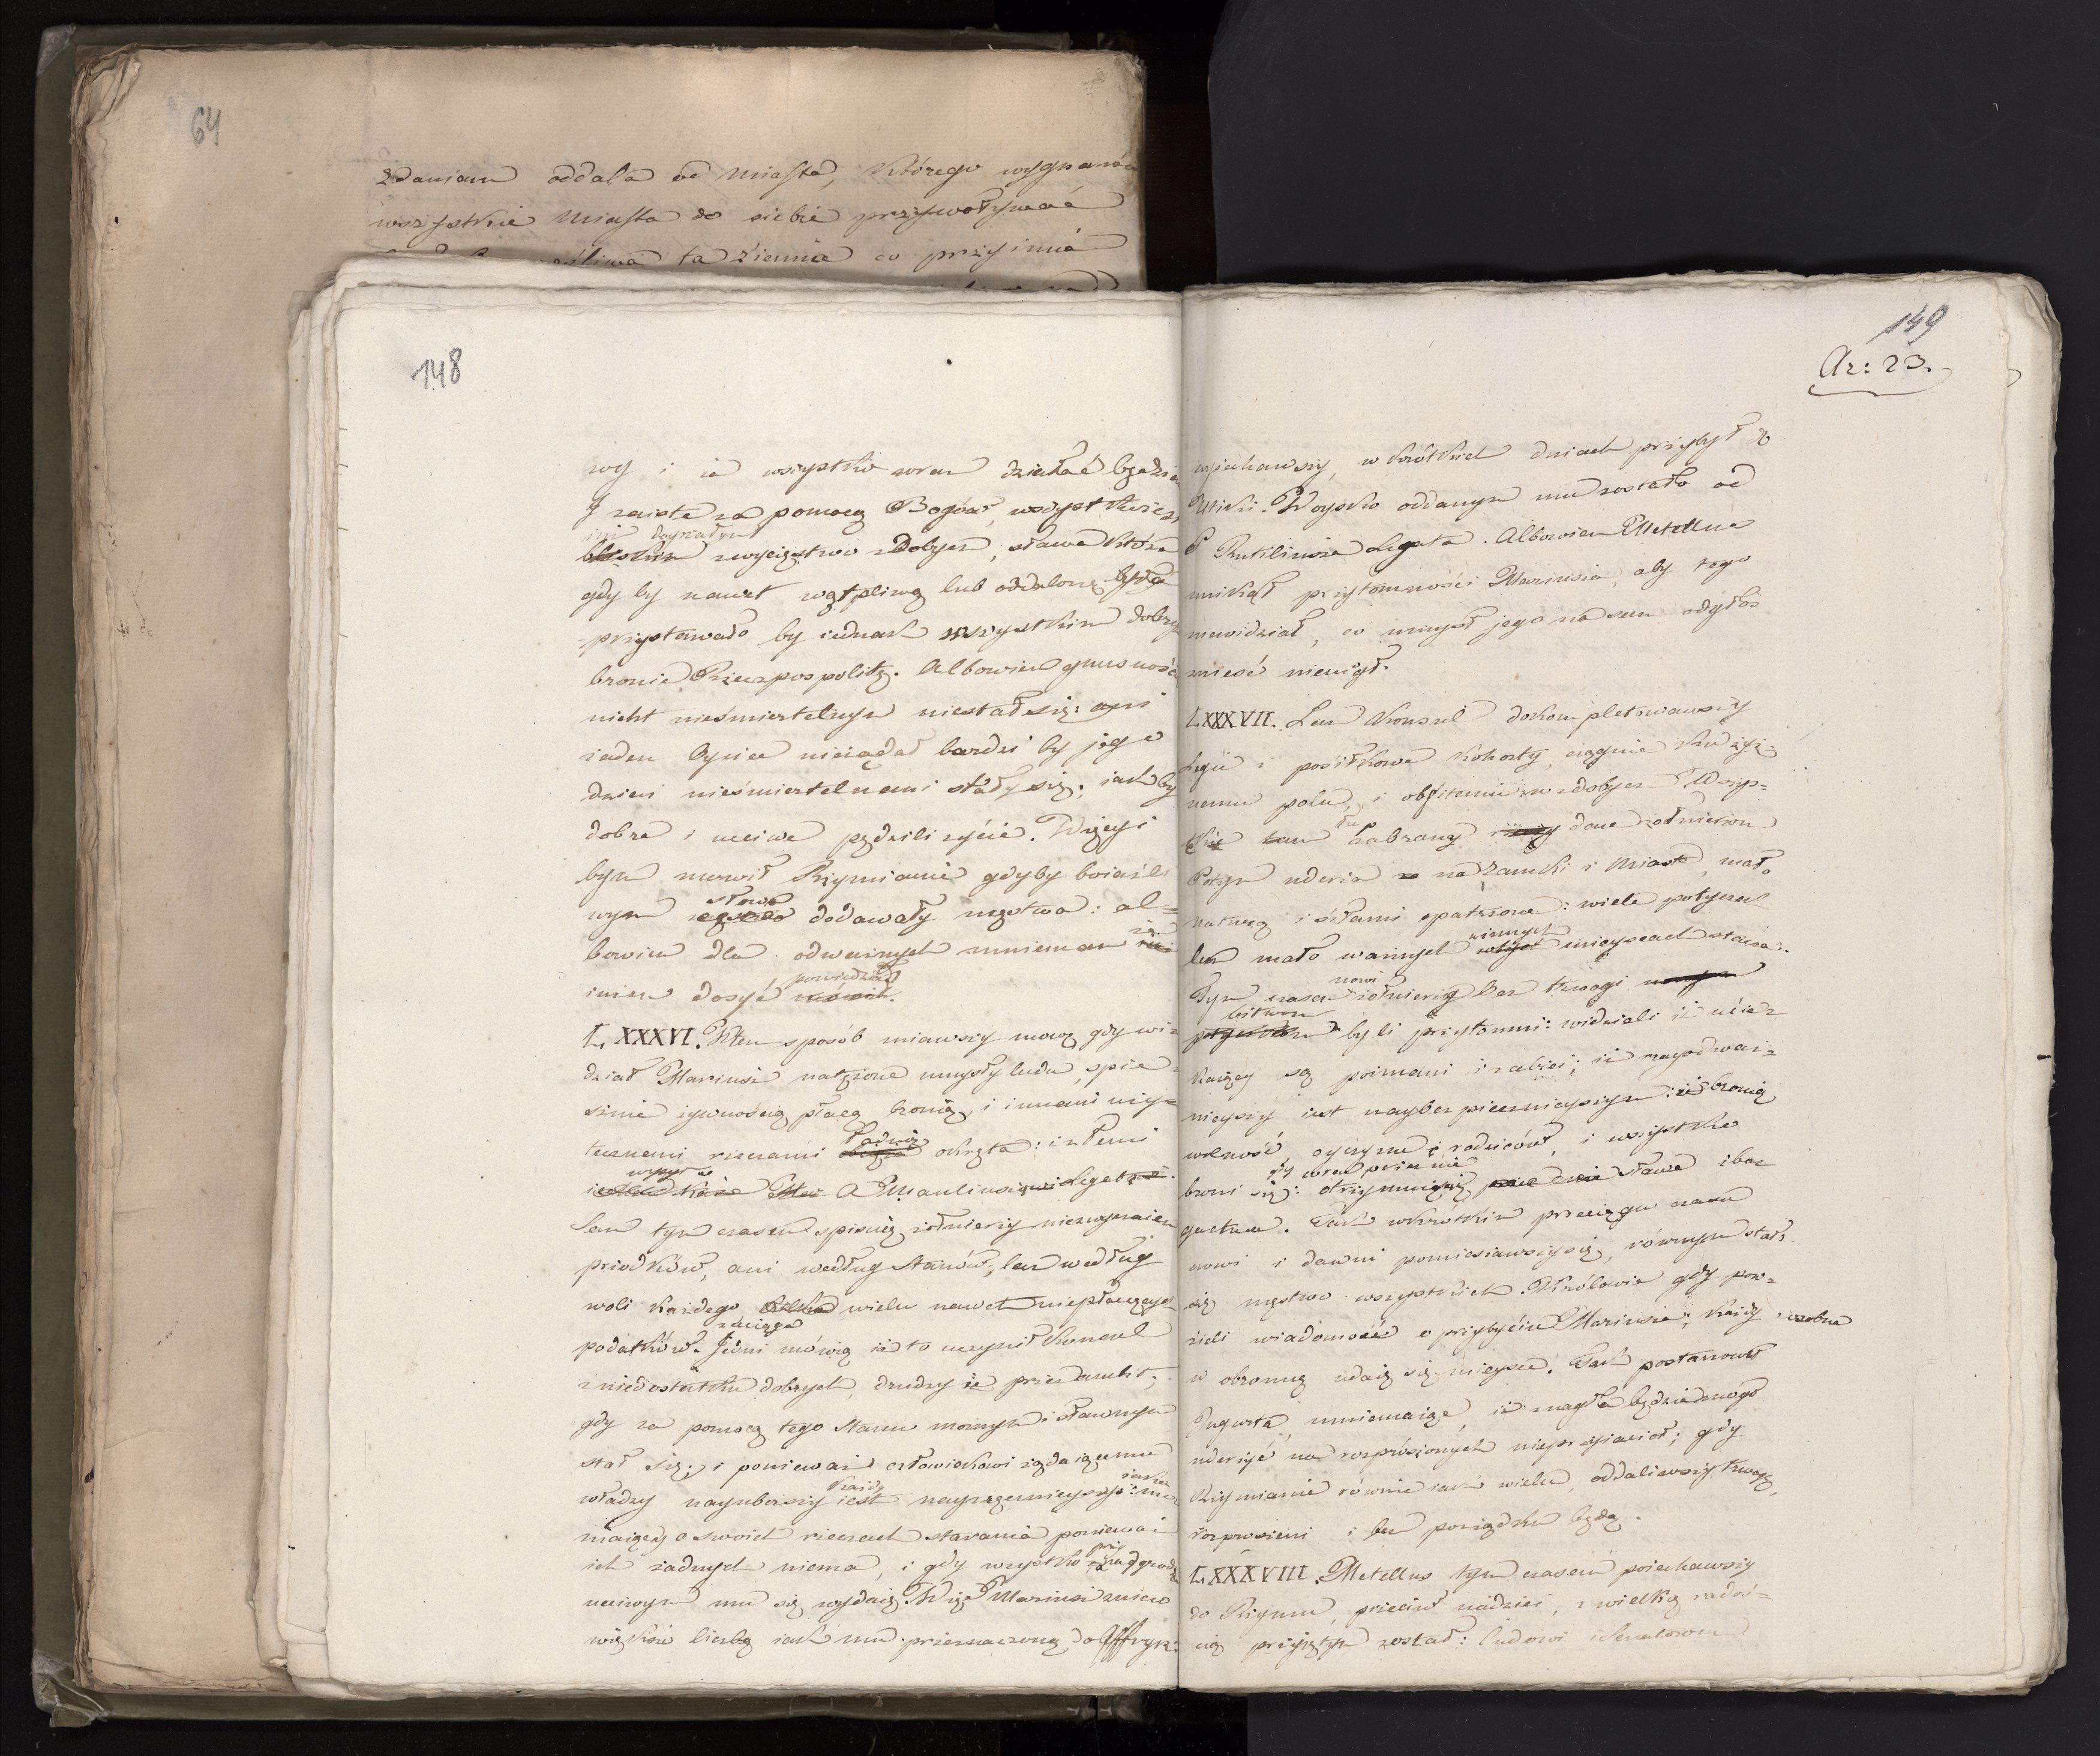 64
zdaniem oddala od Miasta, którego wygnańca
wszystkie Miasta do siebie przywoływać
ta ziemia co przyimie
148
woy i ia wszystko wraz działać będziem
J zaiste za pomocą Bogów, wszystkie są
iuż doyrzałym
zwycięstwo zdobycz, sława która
gdy by nawet wątpliwą lub oddaloną była
przystawało by iednak wszystkim dobrym
bronić Rzeczpospolitą. Albowiem gnusnością
nikt nieśmiertelnym niestał się: ani
żaden Oyciec nieżądał bardzi by jego
dzieci nieśmiertelnemi stały się; iak by
dobre i uczciwe pędzili życie. Więcey i
bym mowił Rzymianie gdyby boiaźli
słowa
wym dodawały męstwa: al=
bowiem dla odważnych mniemam że
powiedzieć
iużem dosyć mówił.
LXXXVI. W ten sposób miawszy mowę gdy wi=
dział Mariusz natężone umysły ludu, spie=
sznie żywnością płacą bronią i innemi uży=
ładuie
tecznemi rzeczami okręta: i z temi
wysyła
A. Manliusza Legata.
Sam tym czasem spisuie żołnierzy niezwyczaiem
przodków, ani według Stanów, lecz według
woli każdego wielu nawet niepłacących
zaciąga
podatków. Jedni mówią iż to uczynił Konsul
z niedostatku dobrych, drudzy iż przez ambit,
gdy za pomocą tego Stanu możnym i sławnym
stał się; i ponieważ człowiekowi żądaiącemu
każdy
władzy nayuboższy iest nayzręcznieyszy: iako
niaiący o swoich rzeczach starania ponieważ
przy
ich żadnych niema, i gdy wszystko za nadgrodą
uczciwym mu się wydaie. Więc Mariusz z nieco
większą liczbą iak mu przeznaczoną do Affryki
149
Ar: 23.
wyiechawszy, w krótkich dniach przybył do
Utiki. Woysko oddanym mu zostało od
P Rutiliusza Legata. Albowiem Metellus
unikał przytomności Mariusza, aby tego
niewidział, co umysł jego na sam odgłos
znieść niemógł.
LXXXVII. Lecz Konsul dokompletowawszy
Legie i posiłkowe Kohorty, ciągnie ku żyź=
nemu polu, i obfitemu w zdobycz. Wszys=
tkie tam zabrany daie żołnierzom
Potym uderza na Zamki i Miasta, mało
naturą i siłami opatrzone: wiele potyczek
winnych
lecz mało ważnych mieyscach stacza.
nowi
Tym czasem żołnierze bez trwogi
bitwom
byli przytomni: widzieli iż ucie=
kaiący są poimani i zabici; iż nayodważ=
nieyszy iest naybezpiecznieyszym: iż bronią
wolność, oyczyznę i rodziców, i wszystko
broni się: otrzymuie sława i bo=
gactwa. Tak wkrótkim przeciągu czasu
nowi i dawni pomieszawszy się, równym stało
się męstwo wszystkich. Królowie gdy pow=
zieli wiadomość o przybyciu Mariusza, każdy z osobna
w obronne udaią się mieysca. Tak postanowił
Jugurta, mniemaiąc, iż nagle będzie mógł
uderzyć na rozpruszonych nieprzyiaciół; gdy
Rzymianie równie iak wielu, oddaliwszy trwogę,
rozproszeni i bez porządku będą.
LXXXVIII. Metellus tym czasem poiechawszy
do Rzymu, przeciw nadziei, z wielką radoś=
cią przyiętym został: ludowi i Senatorom